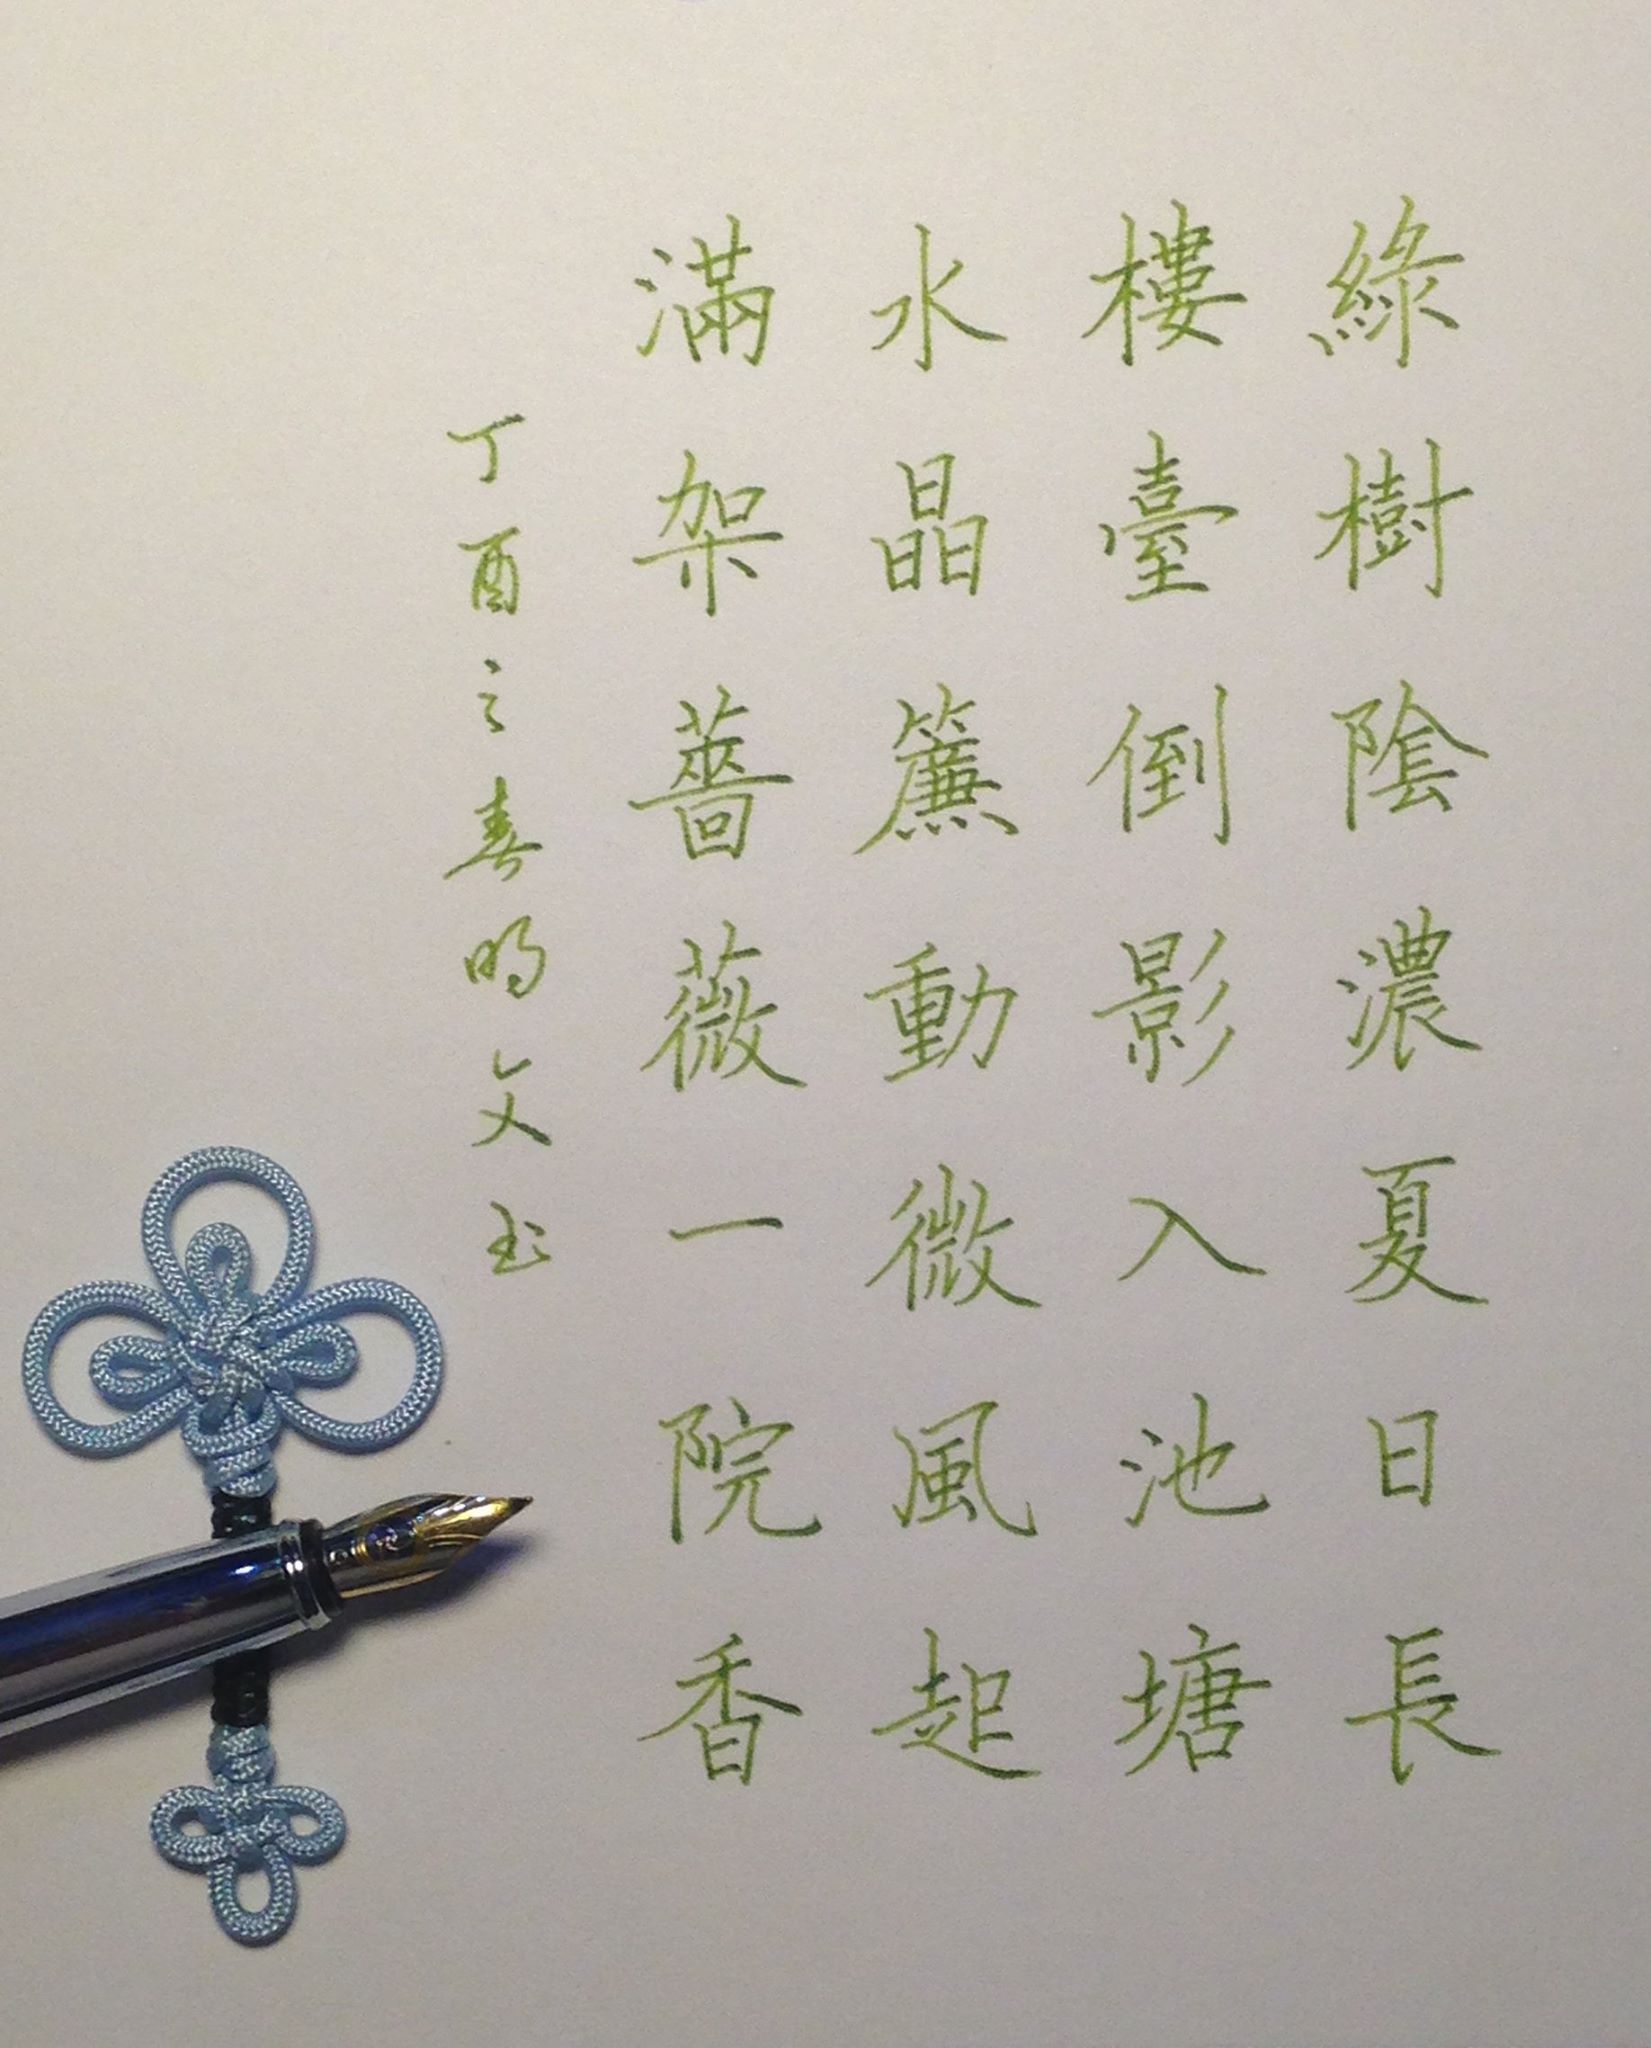 綠樹陰濃夏日長
樓臺倒影入池塘
水晶簾動微風起
滿架薔薇一院香
丁酉之春明文書